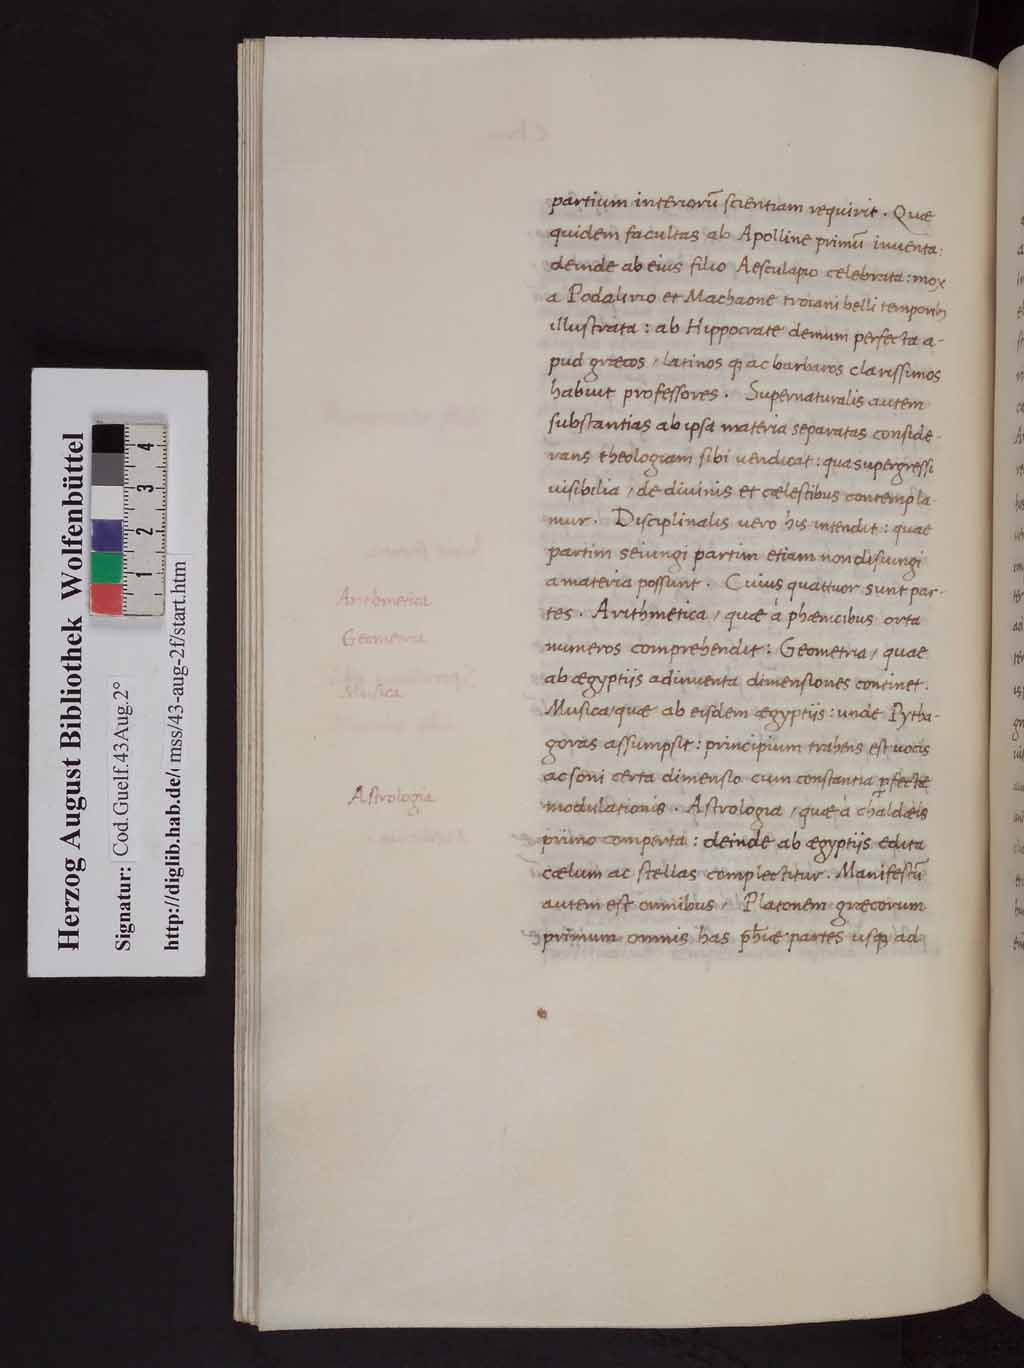 partium interiorū scientiam requirit . Quæ
quidem facultas ab Apolline primū inuenta:
deinde ab eius filio Aesculapio celebrata : mox
a Podalirio et Machaone troiani belli temporib;
illustrata : ab Hippocrate demum perfecta a-
pud græcos / latinos qꝫ ac barbaros clarissimos
habuit professores . Supernaturalis autem
substantias ab ipsa materia separatas conside-
rans theologiam sibi uendicat : qua supergressi
uisibilia / de diuinis et cælestibus contempla-
mur . Disciplinalis uero his intendit : quae
partim seiungi partim etiam non disiungi
a materia possunt . Cuius quattuor sunt par-
tes . Arithmetica / quæ à phænicibus orta
numeros comprehendit : Geometria / quae
ab ægyptijs adinuenta dimensiones continet .
Musica / quæ ab eisdem ægyptijs : unde Pytha-
goras assumpsit : principium trahens est uocis
ac soni certa dimensio cum constantia ꝑfectæ
modulationis . Astrologia / quæ à chaldæis
primo comperta : deinde ab ægyptijs edita
cælum ac stellas complectitur . Manifestū
autem est omnibus / Platonem græcorum
primum omnis has ph̄iæ partes usqꝫ ad
Arithmetica
Geometria
Musica
Astrologia
Herzog August Bibliothek Wolfenbüttel
Signatur: Cod.Guelf.43Aug.2°
http://diglib.hab.de/ mss/43-aug-2f/start.htm
1 2 3 4